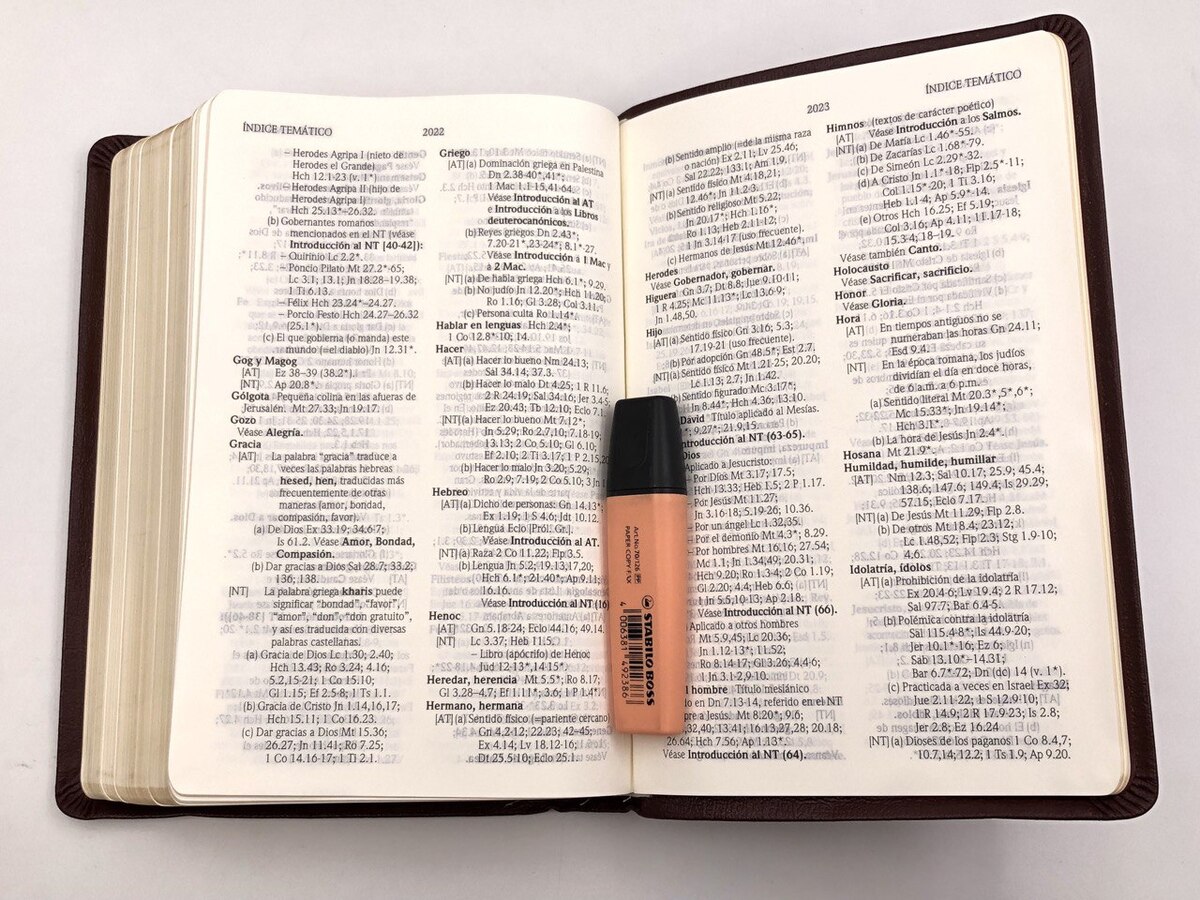 ÍNDICE TEMÁTICO
2022
– Herodes Agripa I (nieto de
Herodes el Grande)
Hch 12.1-23 (v. 1*)
– Herodes Agripa II (hijo de
Herodes Agripa I)
Hch 25.13*-26.32.
(b) Gobernantes romanos
mencionados en el NT (véase
Introducción al NT [40-42]):
– Quirinio Lc 2.2*.
– Poncio Pilato Mt 27.2*-65;
Lc 3.1; 13.1; Jn 18.28–19.38;
1 Ti 6.13.
– Félix Hch 23.24*–24.27.
– Porcio Festo Hch 24.27–26.32
(25.1*).
(c) El que gobierna (o manda) este
mundo (=el diablo) Jn 12.31*.
Gog y Magog
[AT] Ez 38–39 (38.2*).
[NT] Ap 20.8*.
Gólgota Pequeña colina en las afueras de
Jerusalén. Mt 27.33; Jn 19.17.
Gozo
Véase Alegría.
Gracia
[AT] La palabra “gracia” traduce a
veces las palabras hebreas
hesed, hen, traducidas más
frecuentemente de otras
maneras (amor, bondad,
compasión, favor).
(a) De Dios Ex 33.19; 34.6-7;
Is 61.2. Véase Amor, Bondad,
Compasión.
(b) Dar gracias a Dios Sal 28.7; 33.2;
136; 138.
[NT] La palabra griega kharis puede
significar “bondad”, “favor”,
“amor”, “don”, “don gratuito”,
y así es traducida con diversas
palabras castellanas.
(a) Gracia de Dios Lc 1.30; 2.40;
Hch 13.43; Ro 3.24; 4.16;
5.2,15-21; 1 Co 15.10;
Gl 1.15; Ef 2.5-8; 1 Ts 1.1.
(b) Gracia de Cristo Jn 1.14,16,17;
Hch 15.11; 1 Co 16.23.
(c) Dar gracias a Dios Mt 15.36;
26.27; Jn 11.41; Ro 7.25;
1 Co 14.16-17; 1 Ti 2.1.
Griego
[AT] (a) Dominación griega en Palestina
Dn 2.38-40*,41*;
1 Mac 1.1-15,41-64.
Véase Introducción al AT
e Introducción a los Libros
deuterocanónicos.
(b) Reyes griegos Dn 2.43*;
7.20-21*,23-24*; 8.1*-27.
Véase Introducción a 1 Mac y
a 2 Mac.
[NT] (a) De habla griega Hch 6.1*; 9.29.
(b) No judío Jn 12.20*; Hch 11.20;
Ro 1.16; Gl 3.28; Col 3.11.
(c) Persona culta Ro 1.14*.
Hablar en lenguas Hch 2.4*;
1 Co 12.8*-10; 14.
Hacer
[AT] (a) Hacer lo bueno Nm 24.13;
Sal 34.14; 37.3.
(b) Hacer lo malo Dt 4.25; 1 R 11.6;
2 R 24.19; Sal 34.16; Jer 3.4-5;
Ez 20.43; Tb 12.10; Eclo 7.1
[NT] (a) Hacer lo bueno Mt 7.12*;
Jn 5.29; Ro 2.7,10; 7.18-19;
13.13; 2 Co 5.10; Gl 6.10;
Ef 2.10; 2 Ti 3.17; 1 P 2.15,20
(b) Hacer lo malo Jn 3.20; 5.29;
Ro 2.9; 7.19; 2 Co 5.10; 3 Jn
Hebreo
[AT] (a) Dicho de personas: Gn 14.13*
Ex 1.19; 1 S 4.6; Jdt 10.12.
(b) Lengua Eclo [Pról. Gr.].
Véase Introducción al AT.
[NT] (a) Raza 2 Co 11.22; Flp 3.5.
(b) Lengua Jn 5.2; 19.13,17,20;
Hch 6.1*; 21.40*; Ap 9.11;
16.16.
Véase Introducción al NT (16)
Henoc
[AT] Gn 5.18-24; Eclo 44.16; 49.14.
[NT] Lc 3.37; Heb 11.5.
– Libro (apócrifo) de Henoc
Jud 12-13*,14-15*.
Heredar, herencia Mt 5.5*; Ro 8.17;
Gl 3.28–4.7; Ef 1.11*; 3.6; 1 P 1.4*.
Hermano, hermana
[AT] (a) Sentido físico (=pariente cercano)
Gn 4.2-12; 22.23; 42–45;
Ex 4.14; Lv 18.12-16;
Dt 25.5-10; Eclo 25.1.
2023
ÍNDICE TEMÁTICO
(b) Sentido amplio (=de la misma raza
o nación) Ex 2.11; Lv 25.46;
Sal 22.22; 133.1; Am 1.9.
[NT] (a) Sentido físico Mt 4.18,21;
12.46*; Jn 11.2-3.
(b) Sentido religioso Mt 5.22;
Jn 20.17*; Hch 1.16*;
Ro 1.13; Heb 2.11-12;
1 Jn 3.14-17 (uso frecuente).
(c) Hermanos de Jesús Mt 12.46*.
Herodes
Véase Gobernador, gobernar.
Higuera Gn 3.7; Dt 8.8; Jue 9.10-11;
1 R 4.25; Mc 11.13*; Lc 13.6-9;
Jn 1.48,50.
Hijo
[AT] (a) Sentido físico Gn 3.16; 5.3;
17.19-21 (uso frecuente).
(b) Por adopción Gn 48.5*; Est 2.7.
[NT] (a) Sentido físico Mt 1.21-25; 20.20;
Lc 1.13; 2.7; Jn 1.42.
(b) Sentido figurado Mc 3.17*;
Jn 8.44*; Hch 4.36; 13.10.
David Título aplicado al Mesías.
*; 9,27*; 21.9,15.
ntroducción al NT (63-65).
Dios
Aplicado a Jesucristo:
– Por Dios Mt 3.17; 17.5;
Hch 13.33; Heb 1.5; 2 P 1.17.
– Por Jesús Mt 11.27;
Jn 3.16-18; 5.19-26; 10.36.
– Por un ángel Lc 1.32,35.
– Por el demonio Mt 4.3*; 8.29.
– Por hombres Mt 16.16; 27.54;
Mc 1.1; Jn 1.34,49; 20.31;
Hch 9.20; Ro 1.3-4; 2 Co 1.19;
Gl 2.20; 4.4; Heb 6.6;
1 Jn 5.5,10-13; Ap 2.18.
Véase Introducción al NT (66).
Aplicado a otros hombres
Mt 5.9,45; Lc 20.36;
Jn 1.12-13*; 11.52;
Ro 8.14-17; Gl 3.26; 4.4-6;
1 Jn 3.1-2,9-10.
l hombre Título mesiánico
o en Dn 7.13-14, referido en el NT
pre a Jesús. Mt 8.20*; 9.6;
32,40; 13.41; 16.13,27,28; 20.18;
26.64; Hch 7.56; Ap 1.13*.
Véase Introducción al NT (64).
Himnos (textos de carácter poético)
Véase Introducción a los Salmos.
[NT] (a) De María Lc 1.46*-55.
(b) De Zacarías Lc 1.68*-79.
(c) De Simeón Lc 2.29*-32.
(d) A Cristo Jn 1.1*-18; Flp 2.5*-11;
Col 1.15*-20; 1 Ti 3.16;
Heb 1.1-4; Ap 5.9*-14.
(e) Otros Hch 16.25; Ef 5.19;
Col 3.16; Ap 4.11; 11.17-18;
15.3-4; 18–19.
Véase también Canto.
Holocausto
Véase Sacrificar, sacrificio.
Honor
Véase Gloria.
Hora
[AT] En tiempos antiguos no se
numeraban las horas Gn 24.11;
Esd 9.4.
[NT] En la época romana, los judíos
dividían el día en doce horas,
de 6 a.m. a 6 p.m.
(a) Sentido literal Mt 20.3*,5*,6*;
Mc 15.33*; Jn 19.14*;
Hch 3.1*.
(b) La hora de Jesús Jn 2.4*.
Hosana Mt 21.9*.
Humildad, humilde, humillar
[AT] Nm 12.3; Sal 10.17; 25.9; 45.4;
138.6; 147.6; 149.4; Is 29.29;
57.15; Eclo 7.17.
[NT] (a) De Jesús Mt 11.29; Flp 2.8.
(b) De otros Mt 18.4; 23.12;
Lc 1.48,52; Flp 2.3; Stg 1.9-10;
4.6.
Idolatría, ídolos
[AT] (a) Prohibición de la idolatría
Ex 20.4-6; Lv 19.4; 2 R 17.12;
Sal 97.7; Bar 6.4-5.
(b) Polémica contra la idolatría
Sal 115.4-8*; Is 44.9-20;
Jer 10.1*-16; Ez 6;
Sab 13.10*–14.31;
Bar 6.7*-72; Dn (dc) 14 (v. 1*).
(c) Practicada a veces en Israel Ex 32;
Jue 2.11-22; 1 S 12.9-10;
1 R 14.9; 2 R 17.9-23; Is 2.8;
Jer 2.8; Ez 16.24
[NT] (a) Dioses de los paganos 1 Co 8.4,7;
10.7,14; 12.2; 1 Ts 1.9; Ap 9.20.
STABILO BOSS
Art.No. 70/126
PAPER COPY FAX
4 006381 492386